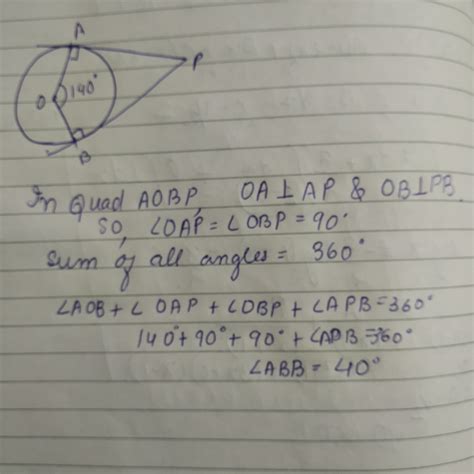 A
P
O
140°
B
In Quad AOBP, OA⊥AP & OB⊥PB
So, ∠OAP = ∠OBP = 90°
Sum of all angles = 360°
∠AOB + ∠OAP + ∠OBP + ∠APB = 360°
140° + 90° + 90° + ∠APB = 360°
∠ABB = 40°